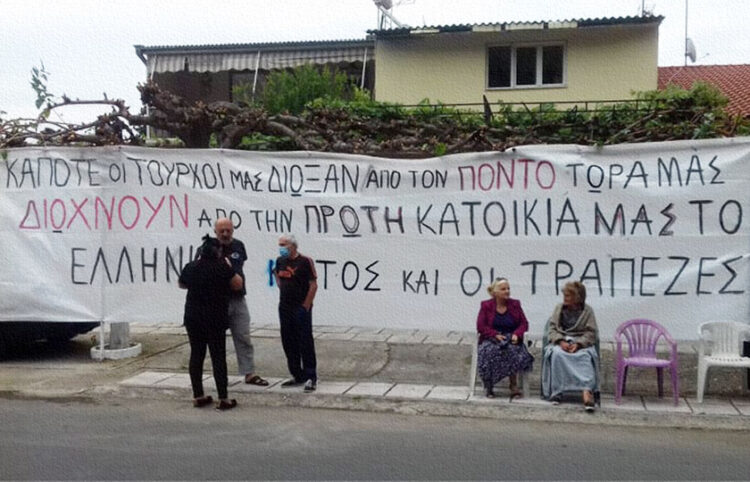 ΚΑΠΟΤΕ ΟΙ ΤΟΥΡΚΟΙ ΜΑΣ ΔΙΩΞΑΝ ΑΠΟ ΤΟΝ ΠΟΝΤΟ ΤΩΡΑ ΜΑΣ
ΔΙΩΧΝΟΥΝ ΑΠΟ ΤΗΝ ΠΡΩΤΗ ΚΑΤΟΙΚΙΑ ΜΑΣ ΤΟ
ΚΑΙ ΟΙ ΤΡΑΠΕΖΕΣ